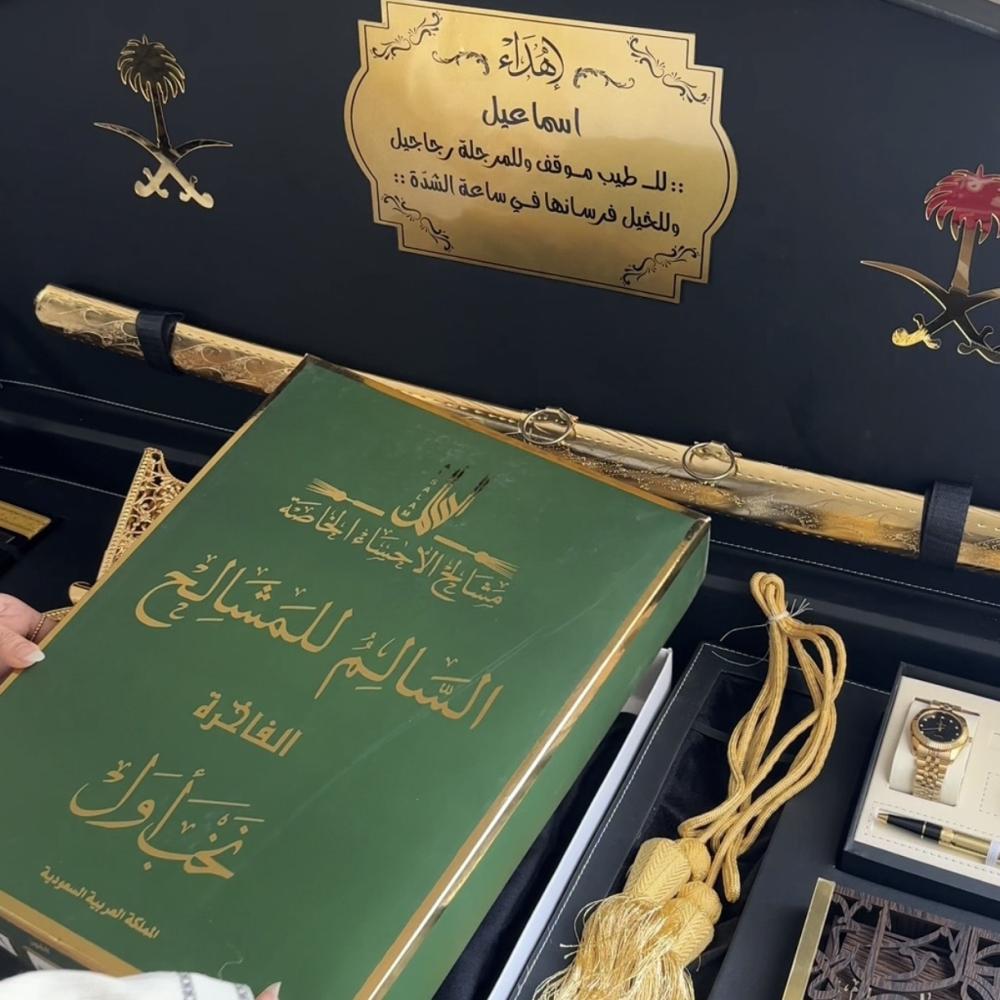 إهْدَاء
اسماعيل
:: للـ طيب موقف وللمرجلة رجاجيل
وللخيل فرسانها في ساعة الشدّة ::
مشالح الأحساء الخاصة
السَّالِمُ للمَشَالِح
الفاخرة
نخب أول
المملكة العربية السعودية